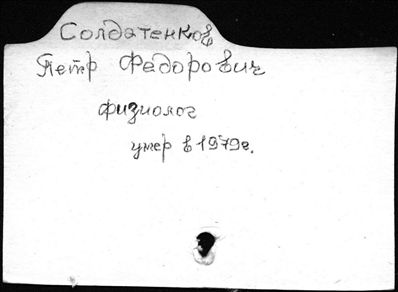 Солдатенков
Петр Федорович
физиолог
умер в 1979г.